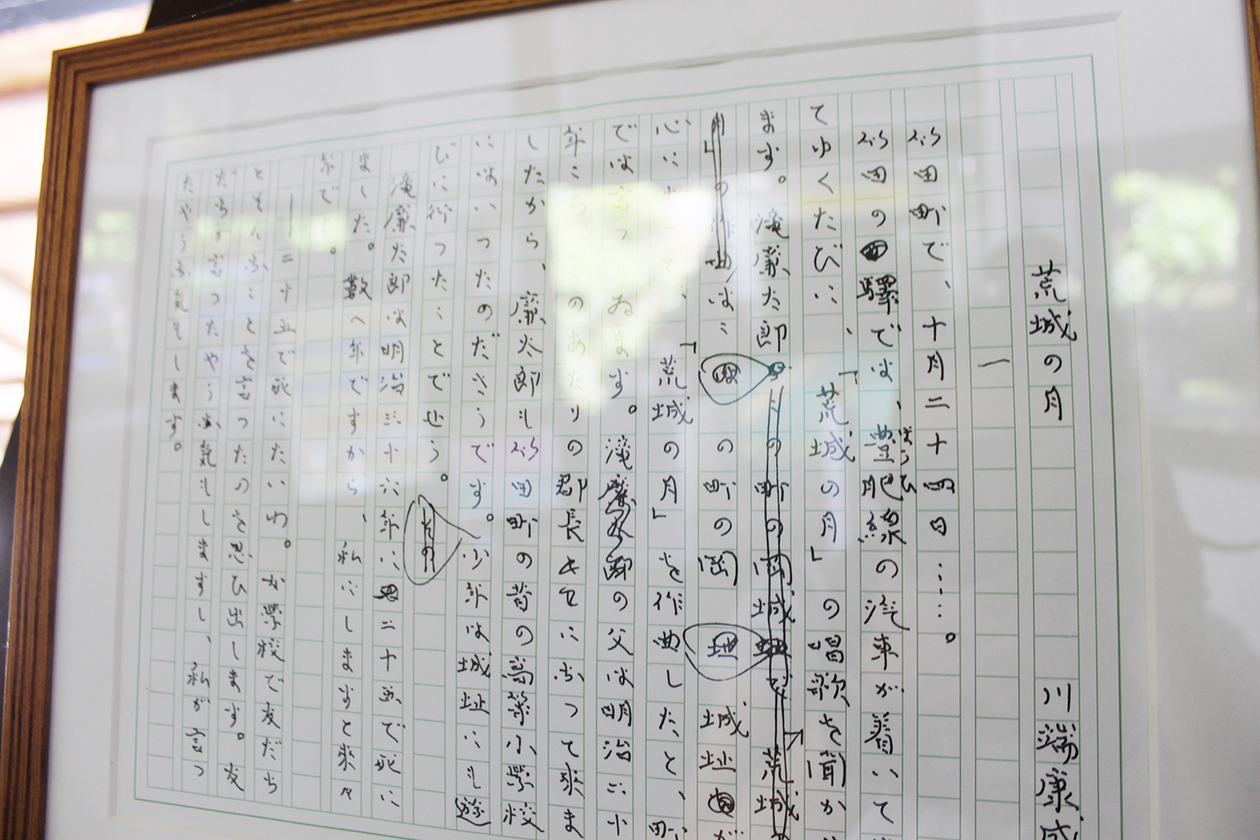 荒城の月　川端康成
一
竹田町で、十月二十四日……。
竹田の驛では、豊肥線の汽車が着いて
ほうひ
てゆくたびに、「荒城の月」の唱歌を聞か
ます。滝廉太郎 の町の岡城 荒城
月」の 曲は の町の岡城址 が
心に 、「荒城の月」を作曲したと、町
では言つてゐます。滝廉太郎の父は明治二十
年ころ のあたりの郡長 になつて来ま
したから、廉太郎も竹田町の昔の高等小学校
にはいつたのださうです。少年は城址にも遊
びに行つたことでせう。
滝廉太郎は明治三十六年に二十五で死に
ました。数へ年ですから、私にしますと来々
年です。
―二十五で死にたいわ。か学校で友だち
ともそんなことを言つたのを思ひ出します。友
だちが言つたやうな気もしますし、私が言つ
たやうな気もします。